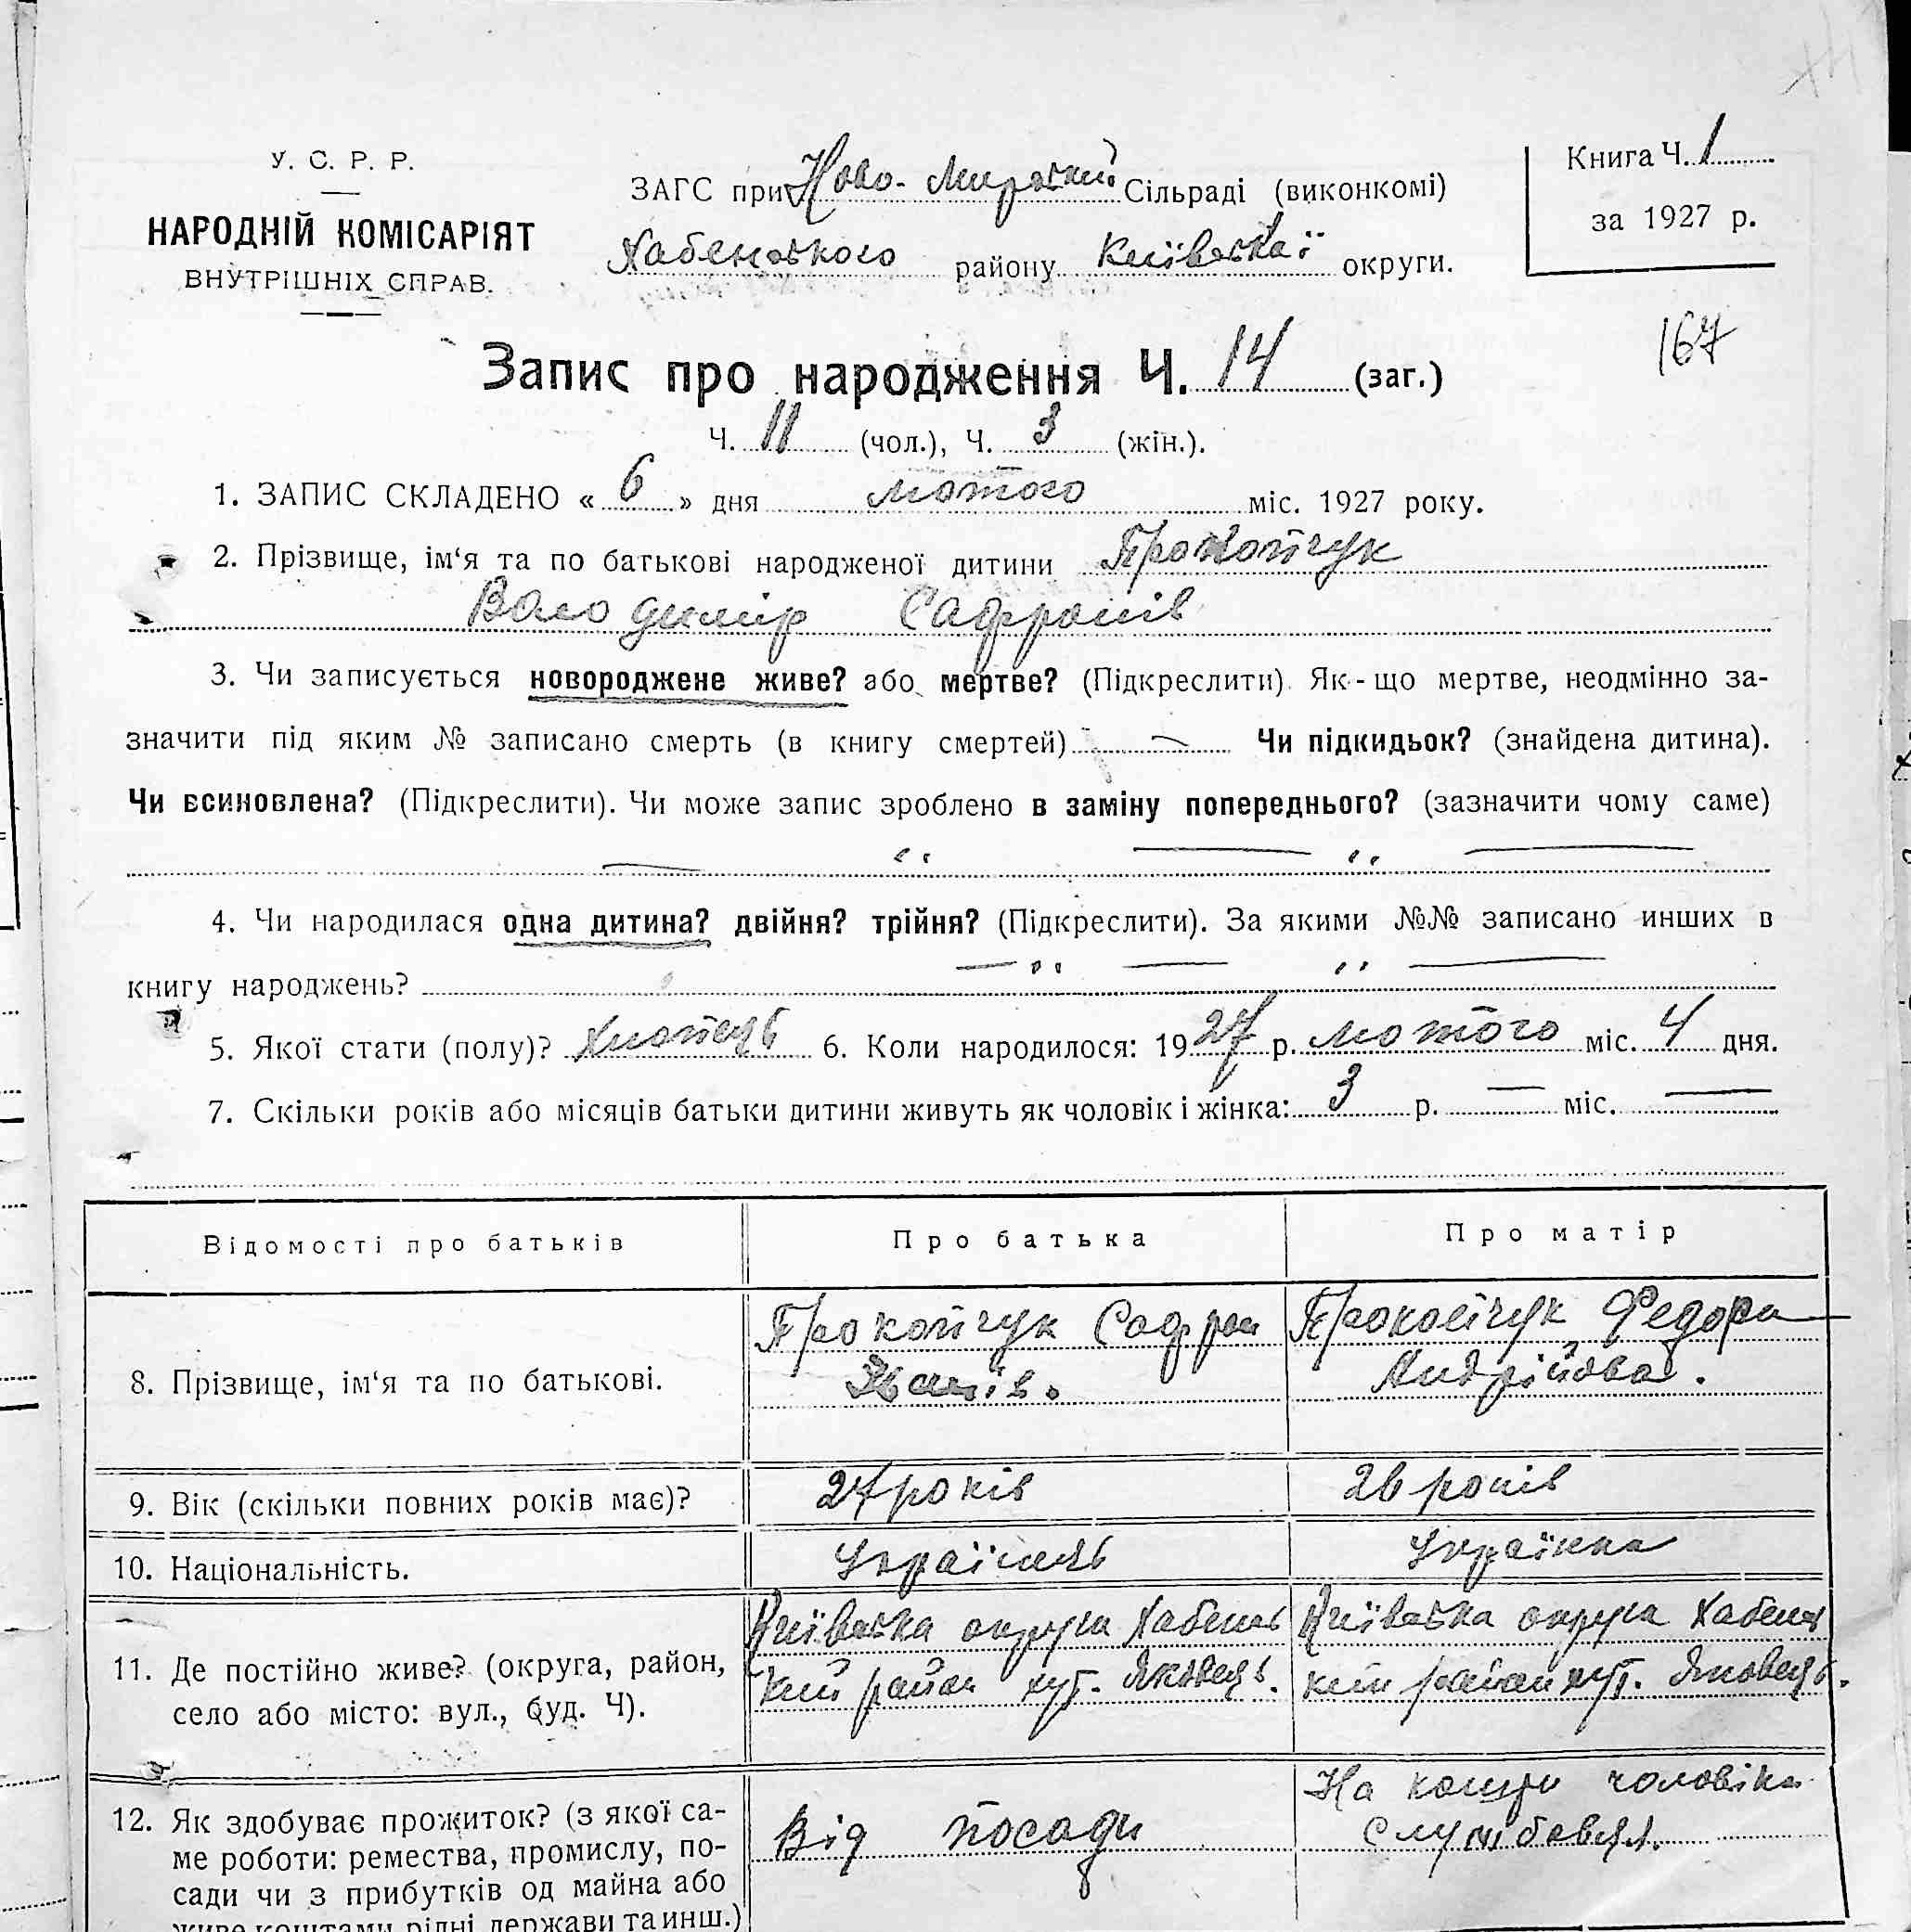 У. С. Р. Р.
НАРОДНІЙ КОМІСАРІЯТ
ВНУТРІШНІХ СПРАВ.
ЗАГС при Ново-Мирський Сільраді (виконкомі)
Хабенського району Київської округи.
Книга Ч. 1
за 1927 р.
167
Запис про народження Ч. 14 (заг.)
Ч. 11 (чол.), Ч. 3 (жін.).
1. ЗАПИС СКЛАДЕНО « 6 » дня лютого міс. 1927 року.
2. Прізвище, ім‘я та по батькові народженої дитини Прокопчук
Володимир Сафронів
3. Чи записується новороджене живе? або мертве? (Підкреслити). Як-що мертве, неодмінно за-
значити під яким № записано смерть (в книгу смертей) — Чи підкидьок? (знайдена дитина).
Чи всиновлена? (Підкреслити). Чи може запис зроблено в заміну попереднього? (зазначити чому саме)
— „ — „ —
4. Чи народилася одна дитина? двійня? трійня? (Підкреслити). За якими №№ записано инших в
книгу народжень? — „ — „ —
5. Якої стати (полу)? Хлопець 6. Коли народилося: 1927 р. лютого міс. 4 дня.
7. Скільки років або місяців батьки дитини живуть як чоловік і жінка: 3 р. — міс. —
Відомості про батьків Про батька Про матір
8. Прізвище, ім‘я та по батькові.
Прокопчук Сафрон
Прокопчук Федора
Андрійова.
9. Вік (скільки повних років має)? 27 років 26 років
10. Національність. Українець Українка
11. Де постійно живе? (округа, район,
село або місто: вул., буд. Ч).
Київська округа Хабенсь
кий район хут. Яковець.
Київська округа Хабенсь
кий район хут. Яковець.
12. Як здобуває прожиток? (з якої са-
ме роботи: ремества, промислу, по-
сади чи з прибутків од майна або
живе коштами рідні, держави та инш.)
Від посади
На кошти чоловіка
Службовця.